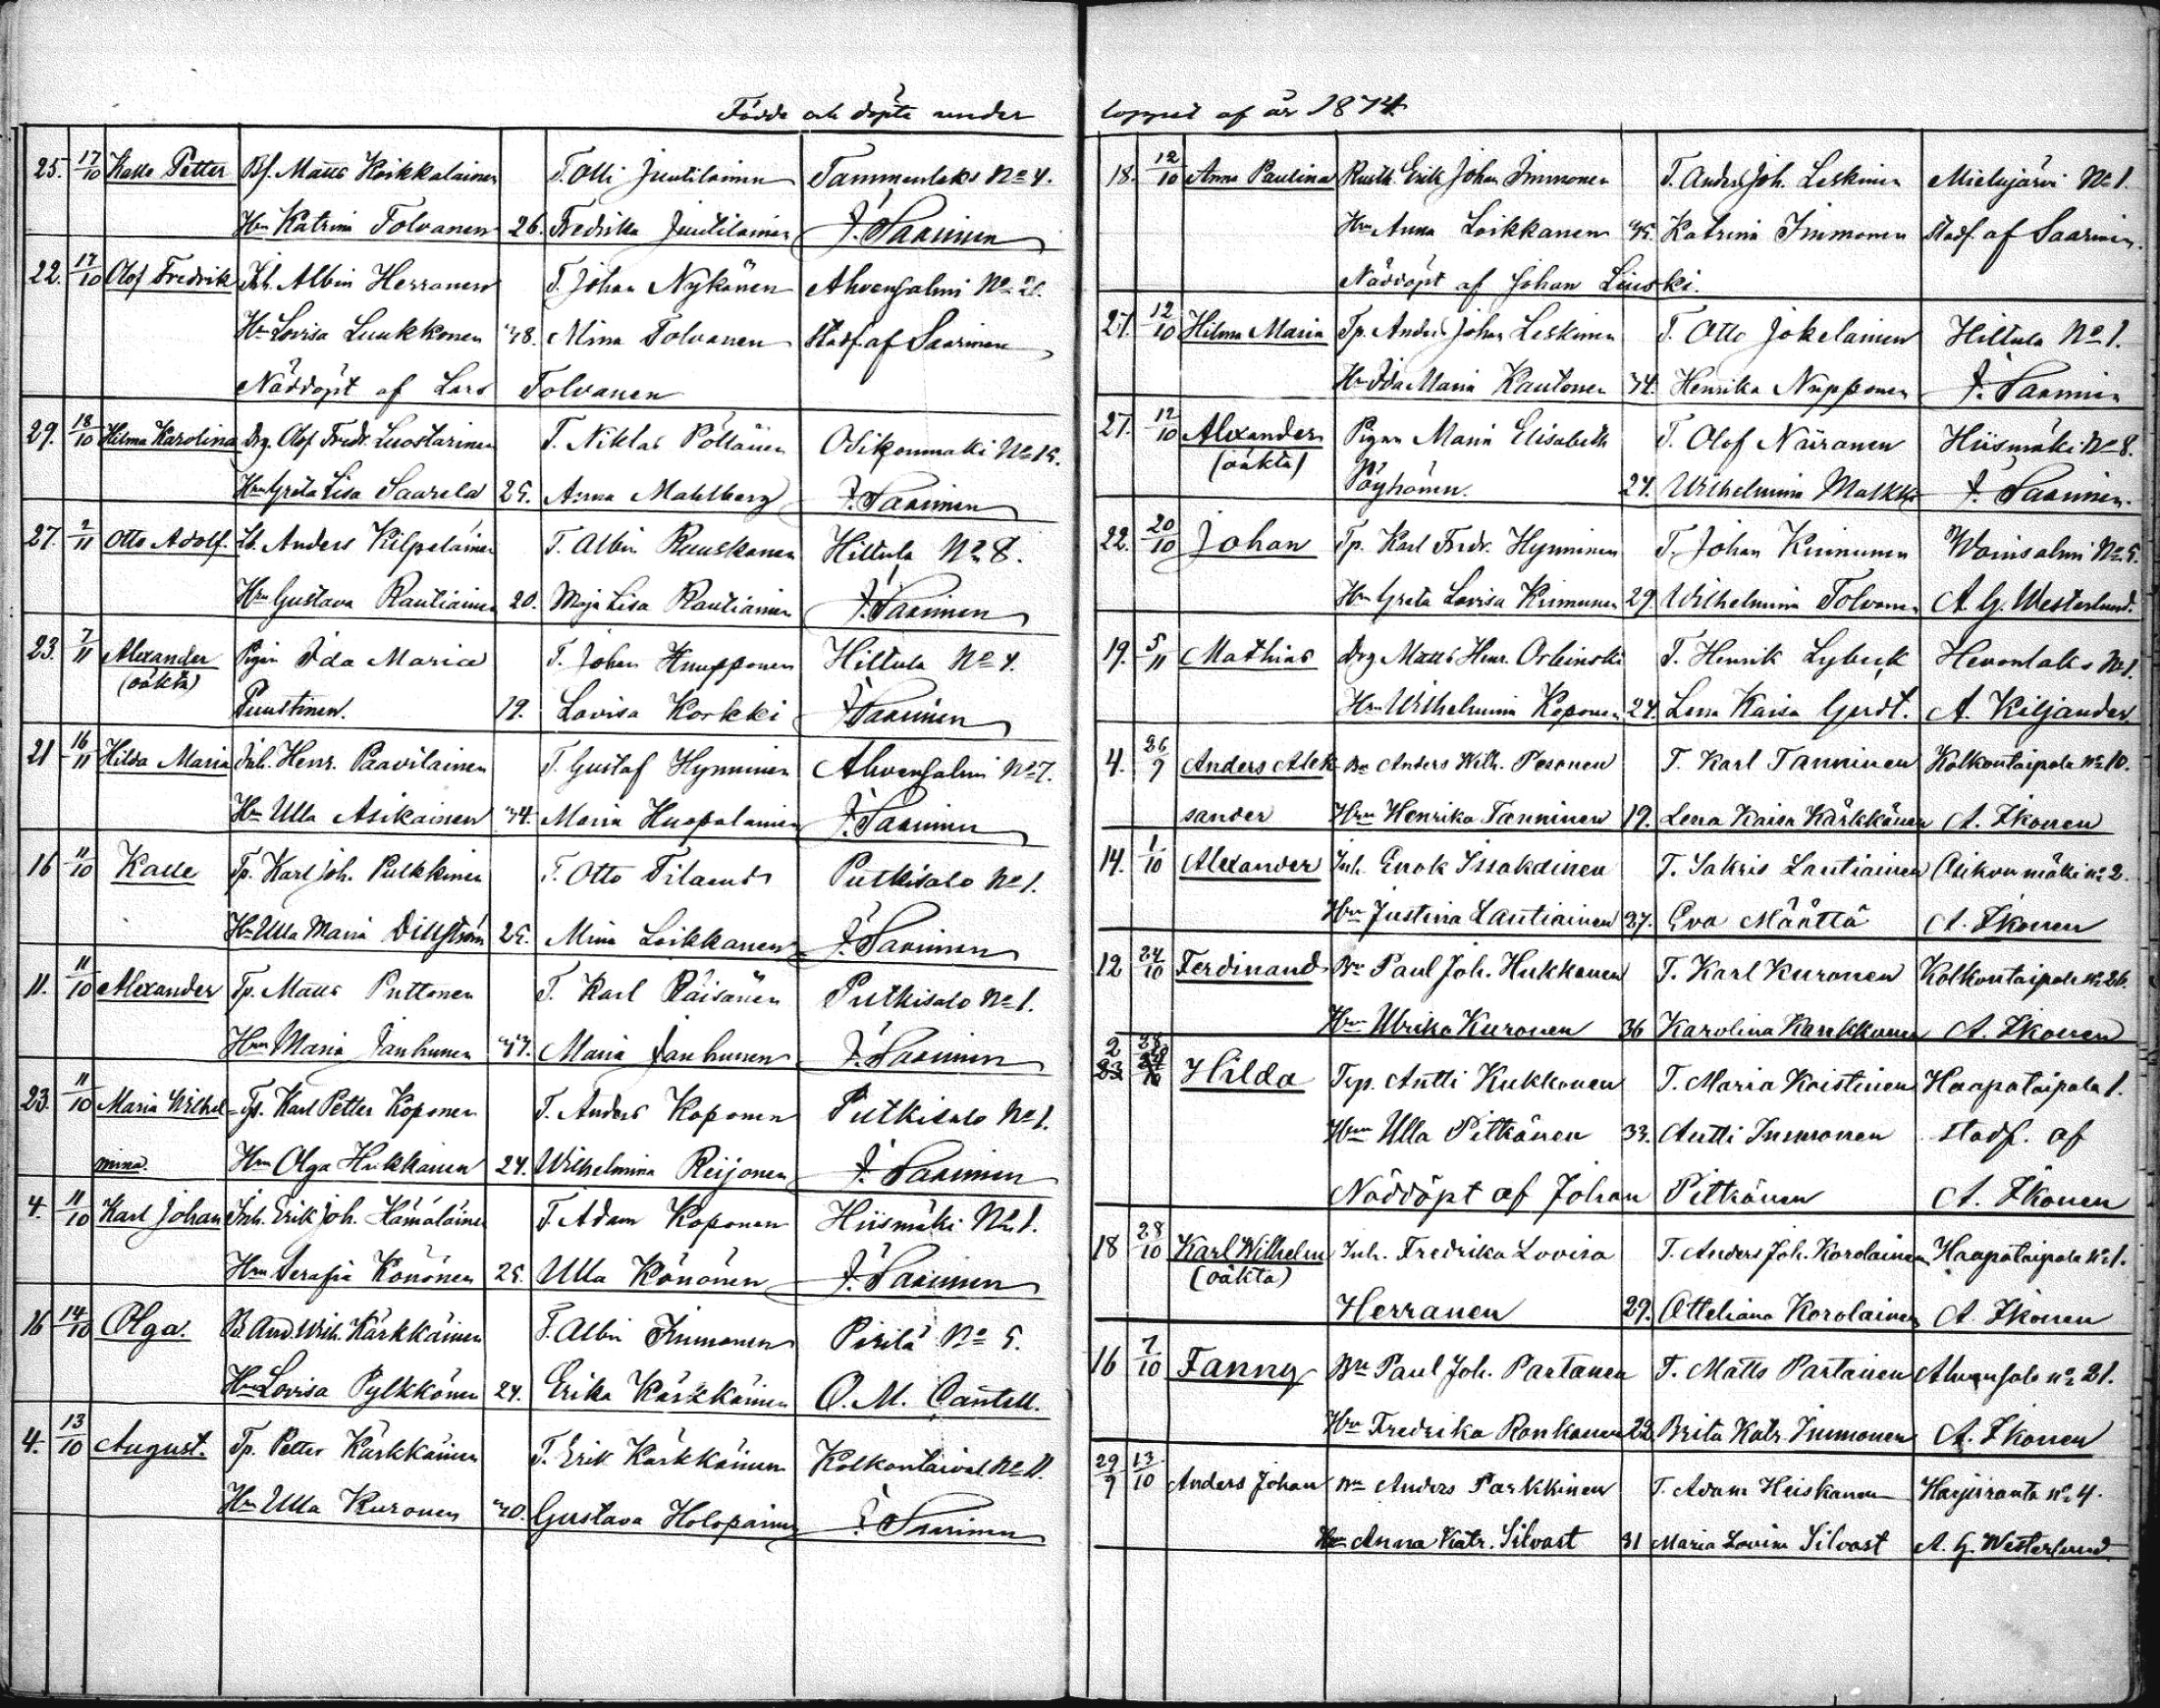 Födde och döpte under
25. 17/10 Kalle Petter Bf. Matts Koikkalainen T. Olli Juutilainen Tammenlaks No 4.
Hm Katrina Tolvanen 26. Fredrika Juutilainen J. Saarinen
22. 17/10 Olof Fredrik Inh. Albin Herranen T. Johan Nykänen Ahvensalmi No 20.
Hm Lovisa Luukkonen 38. Mina Tolvanen Stadf. af Saarinen
Nöddöpt af Lars Tolvanen
29. 18/10 Hilma Karolina Drg. Olof Fredr. Luostarinen T. Niklas Pöllänen Osikonmäki No 15.
Hm Greta Lisa Saarela 25. Anna Mahlberg J. Saarinen
27. 2/11 Otto Adolf. Lb. Anders Kilpeläinen T. Albin Ruuskanen Hiltula No 8.
Hm Gustava Rautiainen 20. Maja Lisa Rautiainen J. Saarinen
23. 7/11 Alexander Pigan Ida Maria T. Johan Knupponen Hiltula No 4.
(oäkta) Puustinen. 19. Lovisa Korkki J. Saarinen
21 16/11 Hilda Maria Inh. Henr. Paavilainen T. Gustaf Hynninen Ahvensalmi No 7.
Hm Ulla Asikainen 34. Maria Huopalainen J. Saarinen
16 11/10 Kalle Tp. Karl Joh. Pulkkinen T. Otto Tilaeus Putkisalo No 1.
Hm Ulla Maria Dillström 25. Mina Loikkanen J. Saarinen
11. 11/10 Alexander Tp. Matts Puttonen T. Karl Räisänen Putkisalo No 1.
Hm Maria Janhunen 37. Maria Janhunen J. Saarinen
23. 11/10 Maria Wilhel- Tp. Karl Petter Koponen T. Anders Koponen Putkisalo No 1.
mina. Hm Olga Hukkanen 24. Wilhelmina Reijonen J. Saarinen
4. 11/10 Karl Johan Inh. Erik Joh. Hämäläinen T. Adam Koponen Hiismäki No 1.
Hm Serafia Könönen 25. Ulla Könönen J. Saarinen
16 14/10 Olga. B. And. Wilh. Kärkkäinen T. Albin Immonen Pirilä No 5.
Hm Lovisa Pylkkönen 24. Erika Kärkkäinen O. M. Cantell.
4. 13/10 August. Tp. Petter Kärkkäinen T. Erik Kärkkäinen Kolkontaival No 11.
Hm Ulla Kuronen 30. Gustava Holopainen J. Saarinen
loppet af år 1874.
18. 12/10 Anna Paulina Rusth. Erik Johan Immonen T. Anders Joh. Leskinen Mielujärvi No 1.
Hm Anna Loikkanen 35. Katrina Immonen Stadf. af Saarinen.
Nöddöpt af Johan Linski.
27. 12/10 Hilma Maria Tp. Anders Johan Leskinen T. Otto Jokelainen Hiltula No 1.
Hm Ida Maria Rautonen 34. Henrika Nupponen J. Saarinen
27. 12/10 Alexander Pigan Maria Elisabeth T. Olof Näiranen Hiismäki No 8.
(oäkta) Pöyhönen. 24. Wilhelmina Malkki J. Saarinen.
22. 20/10 Johan Tp. Karl Fredr. Hynninen T. Johan Kinnunen Woinsalmi No 5.
Hm Greta Lovisa Kinnunen 29. Wilhelmina Tolvanen A. G. Westerlund.
19. 5/11 Mathias Drg Matts Henr. Orleinski T. Henrik Lybeck Hevonlaks No 1.
Hm Wilhelmina Koponen 24. Lena Kaisa Gerdt. A. Kiljander
4. 26/9 Anders Alek- Bn Anders Wilh. Pesonen T. Karl Tanninen Kolkontaipale No 10.
sander Hm Henrika Tanninen 19. Lena Kaisa Kärkkäinen A. Ikonen
14. 1/10 Alexander Inh. Enok Issakainen T. Sakris Lautiainen Osikonmäki No 2.
Hm Justina Lautiainen 27. Eva Määttä A. Ikonen
12 24/10 Ferdinand Bn Paul Joh. Hukkanen T. Karl Kuronen Kolkontaipale No 26.
Hm Ulrika Kuronen 36 Karolina Kaukkonen A. Ikonen
2 28/10 Hilda Trp. Antti Kukkonen T. Maria Koistinen Haapataipale 1.
Hm Ulla Pitkänen 33. Antti Immonen stadf. af
Nöddöpt af Johan Pitkänen A. Ikonen
18 28/10 Karl Wilhelm Inh. Fredrika Lovisa T. Anders Joh. Korolainen Haapataipale No 1.
(oäkta) Herranen 29. Otteliana Korolainen A. Ikonen
16 7/10 Fanny Bn Paul Joh. Partanen T. Matts Partanen Ahvensalo No 21.
Hm Fredrika Ronkanen 22 Brita Katr. Immonen A. Ikonen
29/9 13/10 Anders Johan Bn Anders Parkkinen T. Adam Heiskanen Harjuranta No 4.
Hm Anna Katr. Silvast 31 Maria Lovisa Silvast A. G. Westerlund.